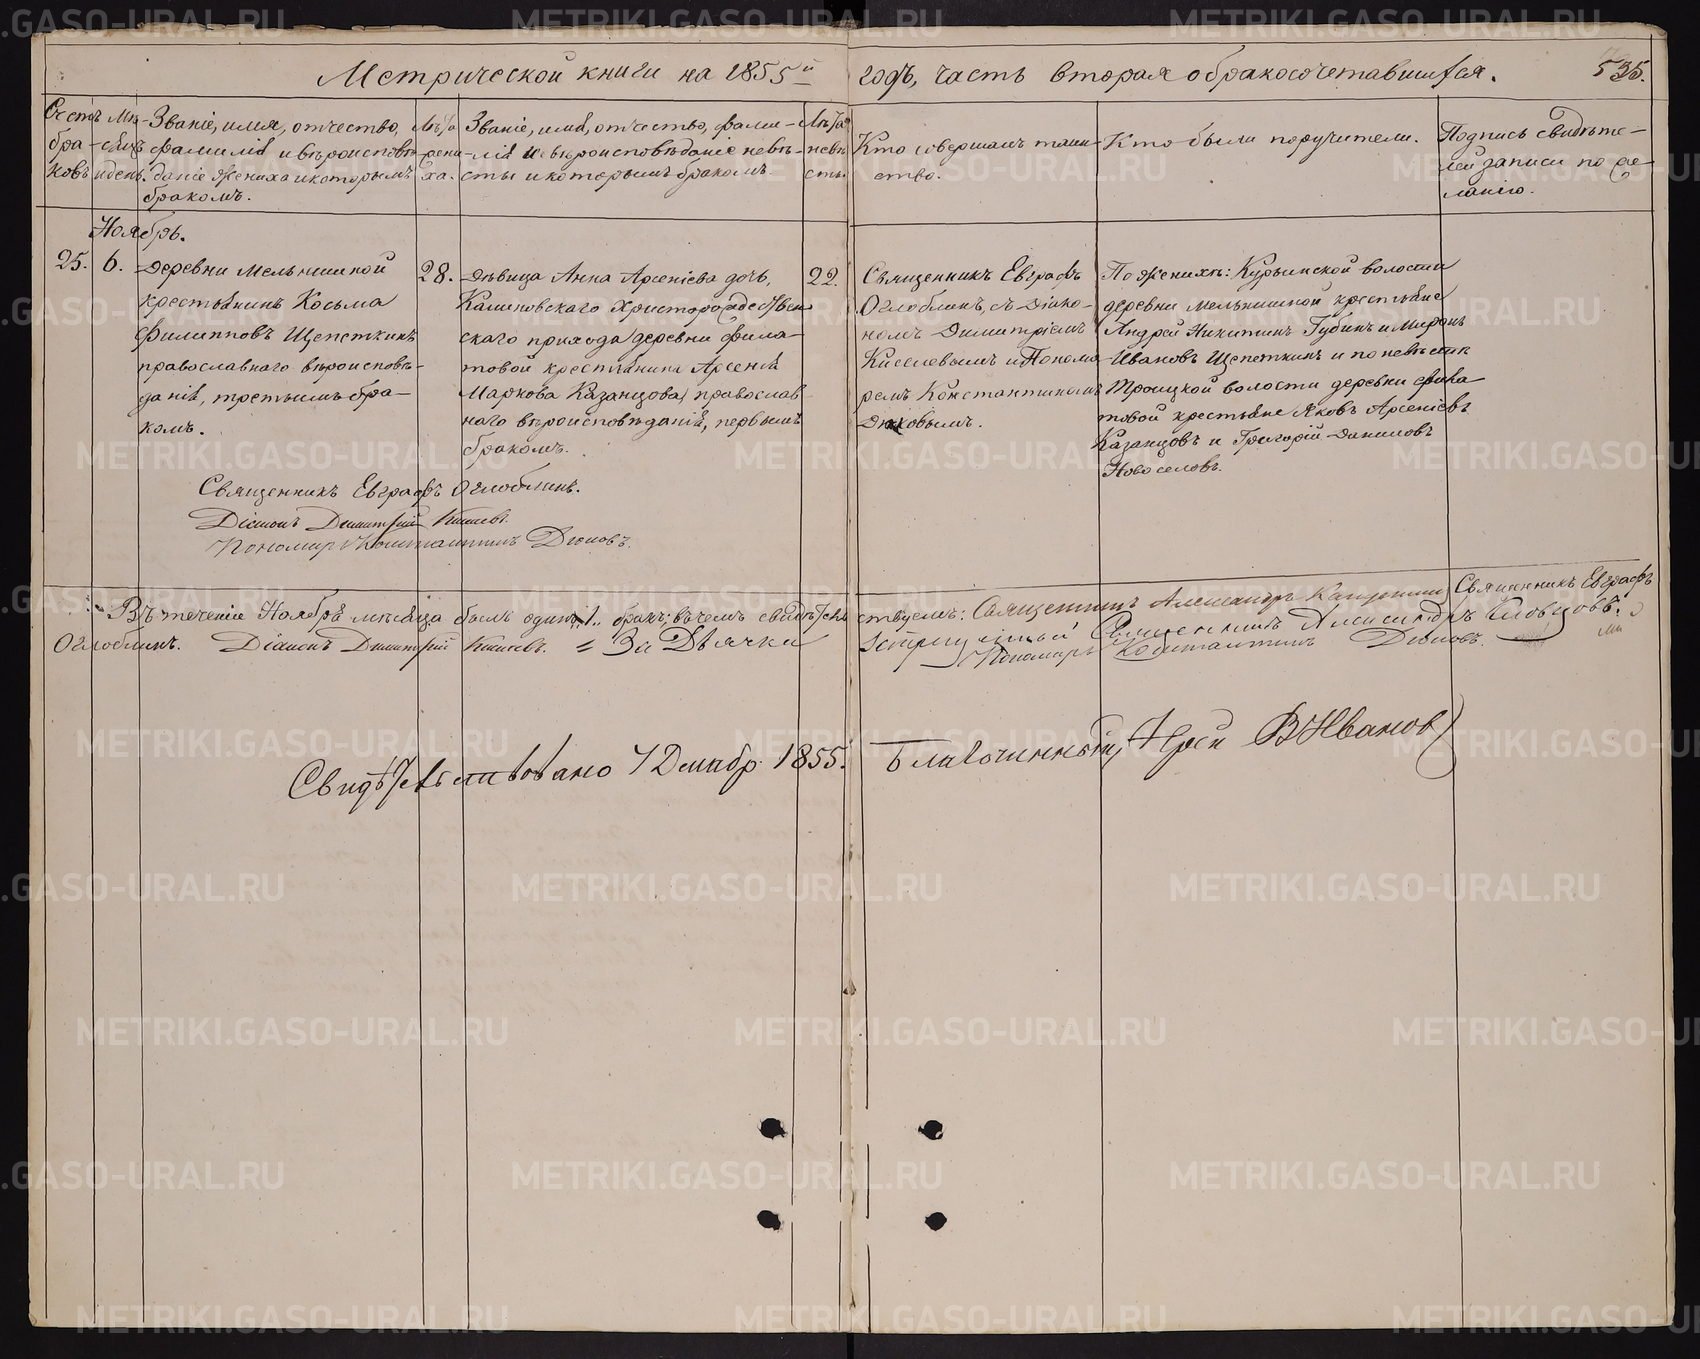 Метрической книги на 1855й годъ, часть вторая о бракосочетавшихся.
535.
Счетъ бра-ковъ
Мѣ-сяцъ и день.
Званіе, имя, отчество,
фамилія и вѣроисповѣ-
даніе жениха и которымъ
бракомъ.
Лѣта
жени-
ха.
Званіе, имя, отчество, фами-
лія и вѣроисповѣданіе невѣ-
сты и которымъ бракомъ.
Лѣта
невѣ
сты
Кто совершалъ таин-
ство.
Кто были поручители.
Подпись свидѣте-
лей записи по же-
ланію.
Ноябрь.
25.
6.
Деревни Мельнишной
крестьянинъ Косьма
Филипповъ Щепеткинъ
православнаго вѣроисповѣ-
данія, третьимъ бра-
комъ.
28.
Дѣвица Анна Арсеніева дочь,
Калиновскаго Христорождествен
скаго прихода деревни Фила-
товой крестьянина Арсенія
Маркова Казанцова, православ-
наго вѣроисповѣданія, первымъ
бракомъ.
22.
Священникъ Евграфъ
Оглоблинъ, съ Діако-
номъ Димитріемъ
Киселевымъ и Понома-
ремъ Константиномъ
Дюковымъ.
По женихѣ: Курьинской волости
деревни Мельнишной крестьяне
Андрей Никитинъ Губинъ и Миронъ
Ивановъ Щепеткинъ и по невѣстѣ
Троицкой волости деревни Фила-
товой крестьяне Яковъ Арсеніевъ
Казанцовъ и Григорій Даниловъ
Новоселовъ.
Священникъ Евграфъ Оглоблинъ.
Діаконъ Димитрій Киселевъ.
Пономарь Константинъ Дюковъ.
Въ теченіе Ноября мѣсяца былъ одинъ 1. бракъ; въ чемъ свидѣтельствуемъ: Священникъ Александръ Священникъ Евграфъ
Оглоблинъ. Діаконъ Димитрій Киселевъ. За Дьячка Священникъ Александръ Словцовъ.
Пономарь Константинъ Дюковъ.
Свидѣтельствовано 7 Декабр. 1855. Благочинный, Іерей В Ивановъ
METRIKI.GASO-URAL.RU